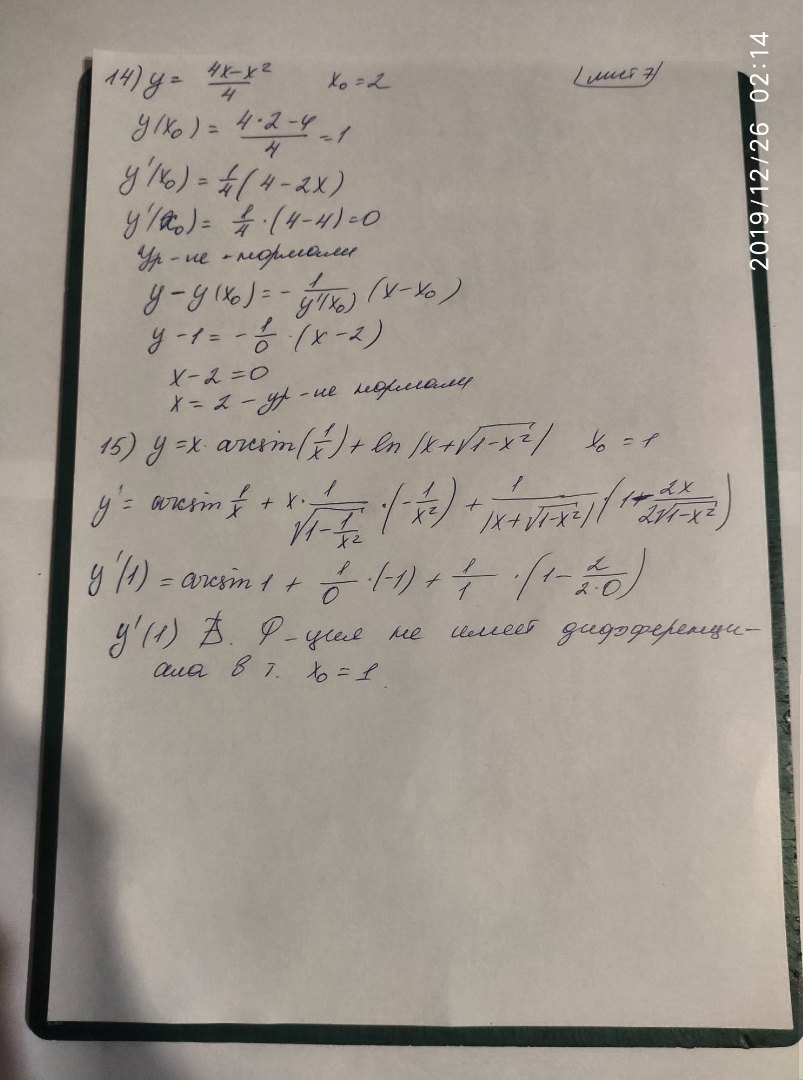 14) y = (4x-x²)/4   x₀=2   (лист 7)
y(x₀) = (4·2-4)/4 = 1
y'(x₀) = 1/4(4-2x)
y'(x₀) = 1/4·(4-4)=0
Ур-ие нормали
y-y(x₀)=-1/y'(x₀) (x-x₀)
y-1=-1/0·(x-2)
x-2=0
x=2-ур-ие нормали
15) y=x·arcsin(1/x)+ln|x+√(1-x²)|   x₀=1
y' = arcsin 1/x + x·1/√(1-1/x²)·(-1/x²)+1/|x+√(1-x²)|·(1-2x/(2√(1-x²)))
y'(1) = arcsin 1 + 1/0·(-1)+1/1·(1-2/(2·0))
y'(1) ∄. Ф-ция не имеет дифференци-
ала в т. x₀=1
2019/12/26 02:14